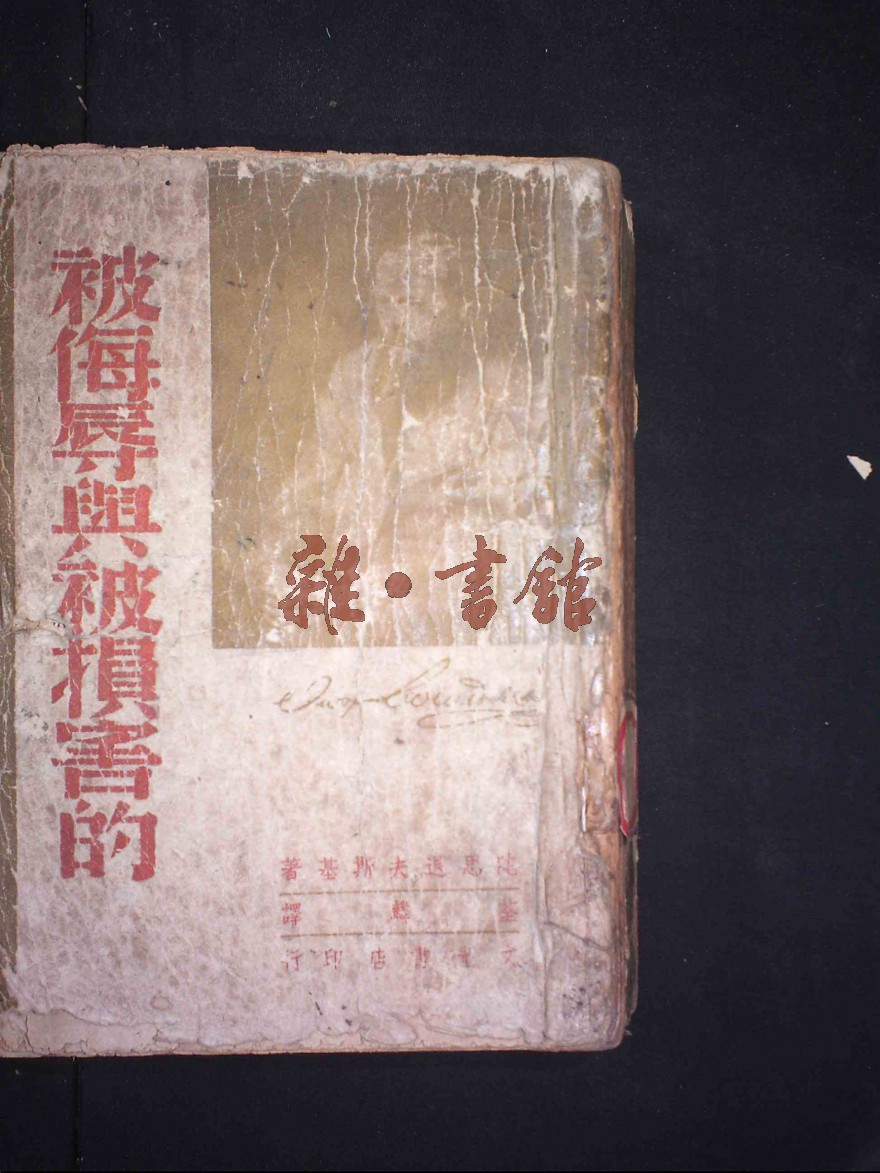 被侮辱與被損害的
雜·書館
陀思退夫斯基著
荃譯
文光書店印行